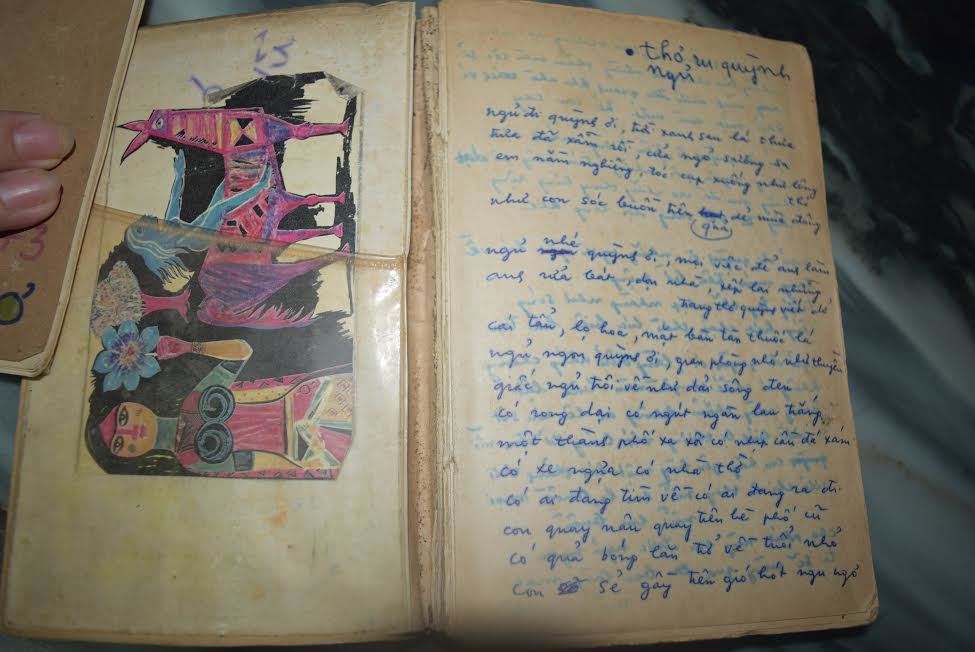 • thơ ru quỳnh
ngủ
ngủ đi quỳnh ơi, trời xanh sau lá thưa
trưa đã xẫm rồi, cửa ngỏ
em nằm nghiêng, tóc cúp xuống như lông thỏ
như con sóc buồn trên quả dẻ mùa đông
ngủ nhé quỳnh ơi, mọi việc để anh làm
anh rửa bát, dọn nhà, xếp lại những
trang thơ quỳnh viết dở
cái tẩu, lọ hoa, mặt bàn tàn thuốc lá
ngủ ngon quỳnh ơi, gian phòng nhỏ như thuyền
giấc ngủ trôi về như dải sông đen
có rong dại có ngút ngàn lau trắng
một thành phố xa xôi có nhịp cầu đá xám
có xe ngựa có nhà thờ
có ai đang tìm về có ai đang ra đi
con quay nâu quay trên hè phố cũ
có quả bóng lăn từ về tuổi nhỏ
con sẻ gầy trên gió hót ngu ngơ